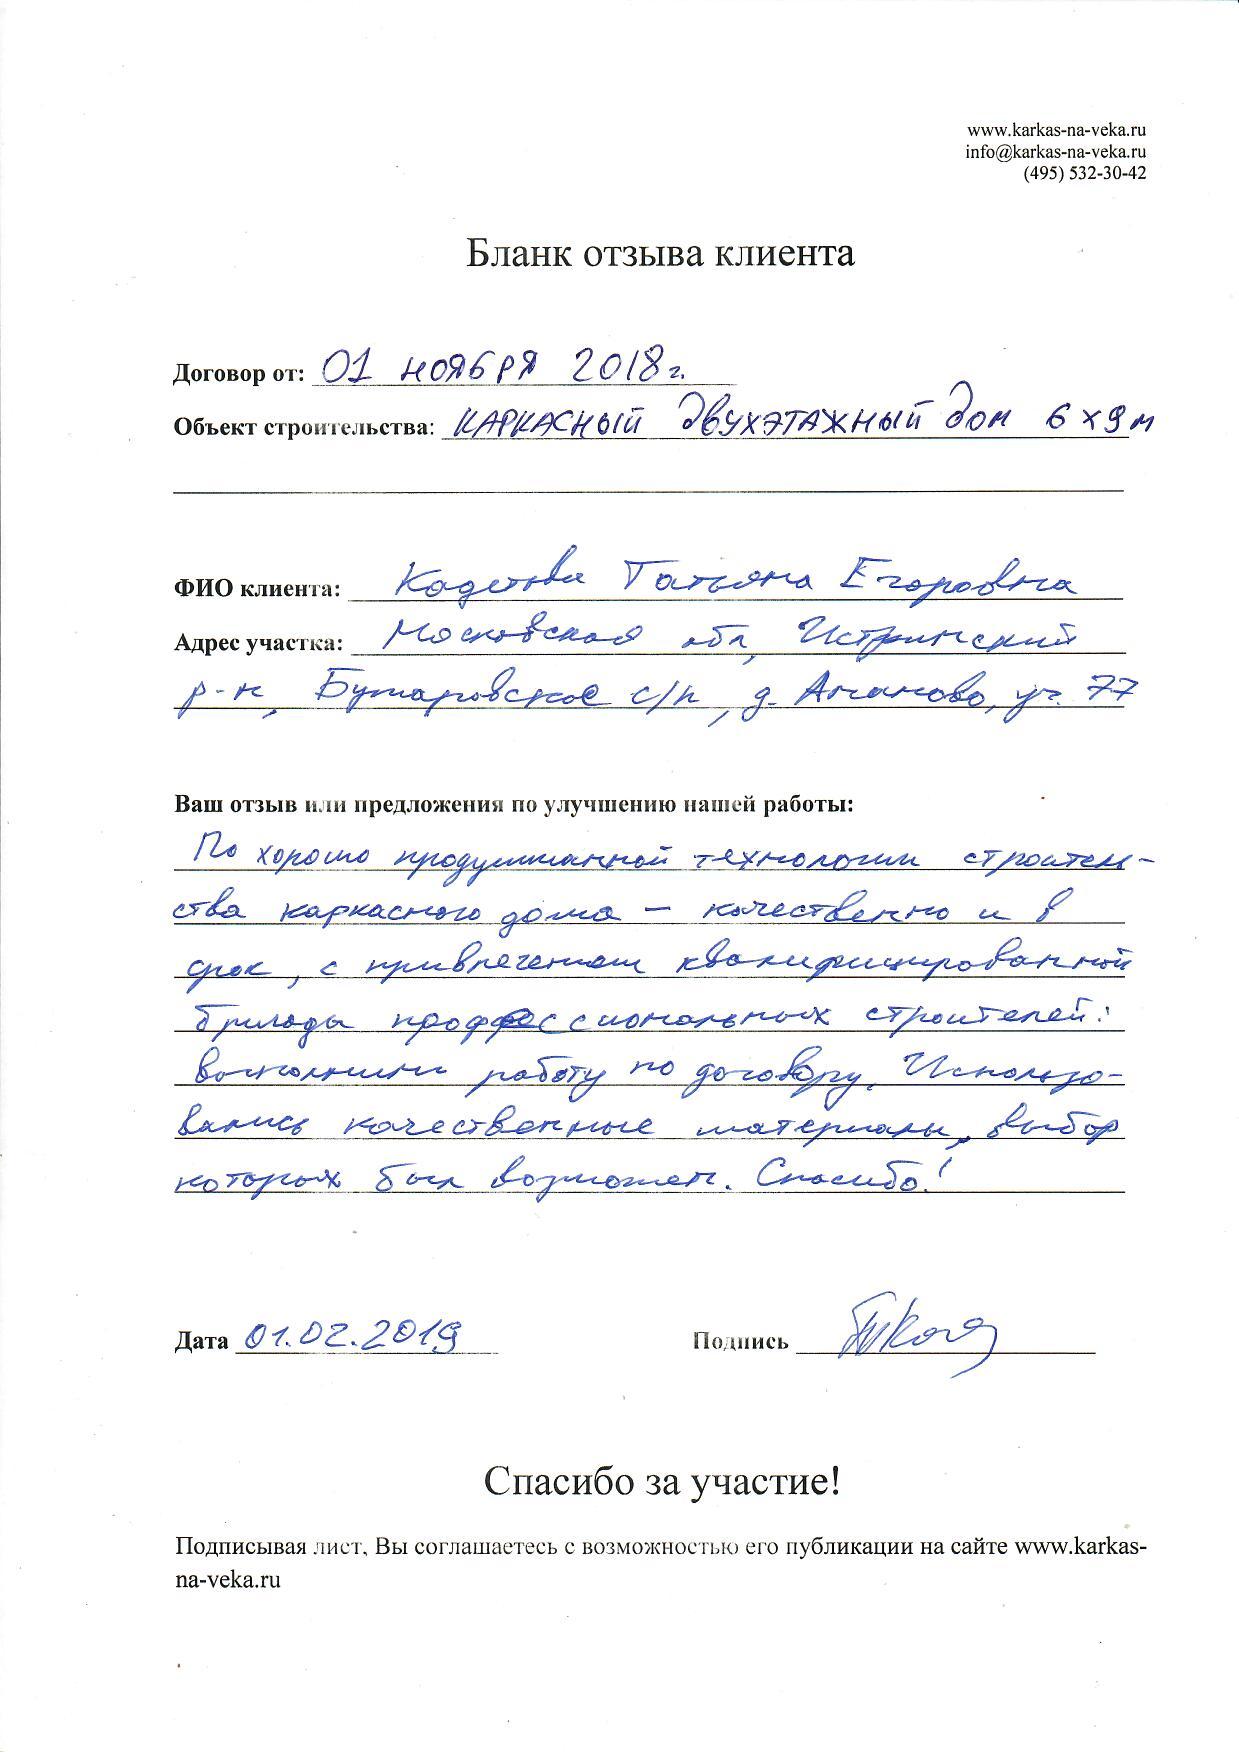 www.karkas-na-veka.ru
info@karkas-na-veka.ru
(495) 532-30-42
Бланк отзыва клиента
Договор от: 01 ноября 2018г.
Объект строительства: КАРКАСНЫЙ ДВУХЭТАЖНЫЙ ДОМ 6 х 9 м
ФИО клиента: Татьяна Егоровна
Адрес участка: Московская обл, Истринский
р-н, с/п, д. Ананово, уч. 77
Ваш отзыв или предложения по улучшению нашей работы:
По хорошо продуманной технологии строитель-
ства каркасного дома – качественно и в
срок, с привлечением квалифицированной
бригады профессиональных строителей:
выполнили работу по договору. Использо-
вались качественные материалы, выбор
которых был возможен. Спасибо!
Дата 01.02.2019 Подпись
Спасибо за участие!
Подписывая лист, Вы соглашаетесь с возможностью его публикации на сайте www.karkas-
na-veka.ru